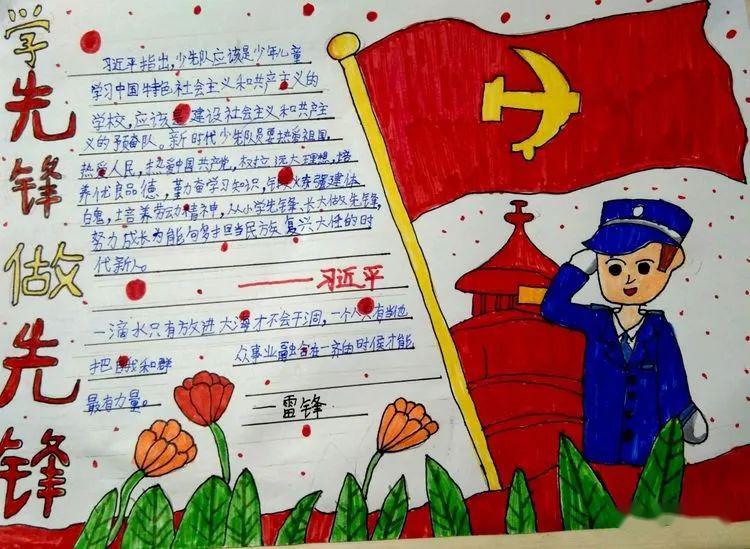 学先锋做先锋
习近平指出,少先队应该是少年儿童
学习中国特色社会主义和共产主义的
学校,应该是建设社会主义和共产主
义的预备队。新时代少先队员要热爱祖国
热爱人民,热爱中国共产党,树立远大理想,培
养优良品德,勤奋学习知识,锻炼强健体
魄,培养劳动精神,从小学先锋,长大做先锋,
努力成长为能够担当民族复兴大任的时
代新人。
——习近平
一滴水只有放进大海才不会干涸,一个人只有当他
把自我和群 众事业融合在一齐的时候才能
最有力量。
—雷锋